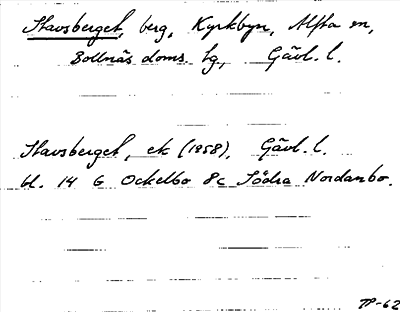 Stavsberget, berg, Kyrkbyn, Alfta sn,
Bollnäs doms. tg, Gävl. l.
Stavsberget, ek (1958), Gävl. l.
bl. 14 G Ockelbo 8c Södra Nordanbo.
TP-62